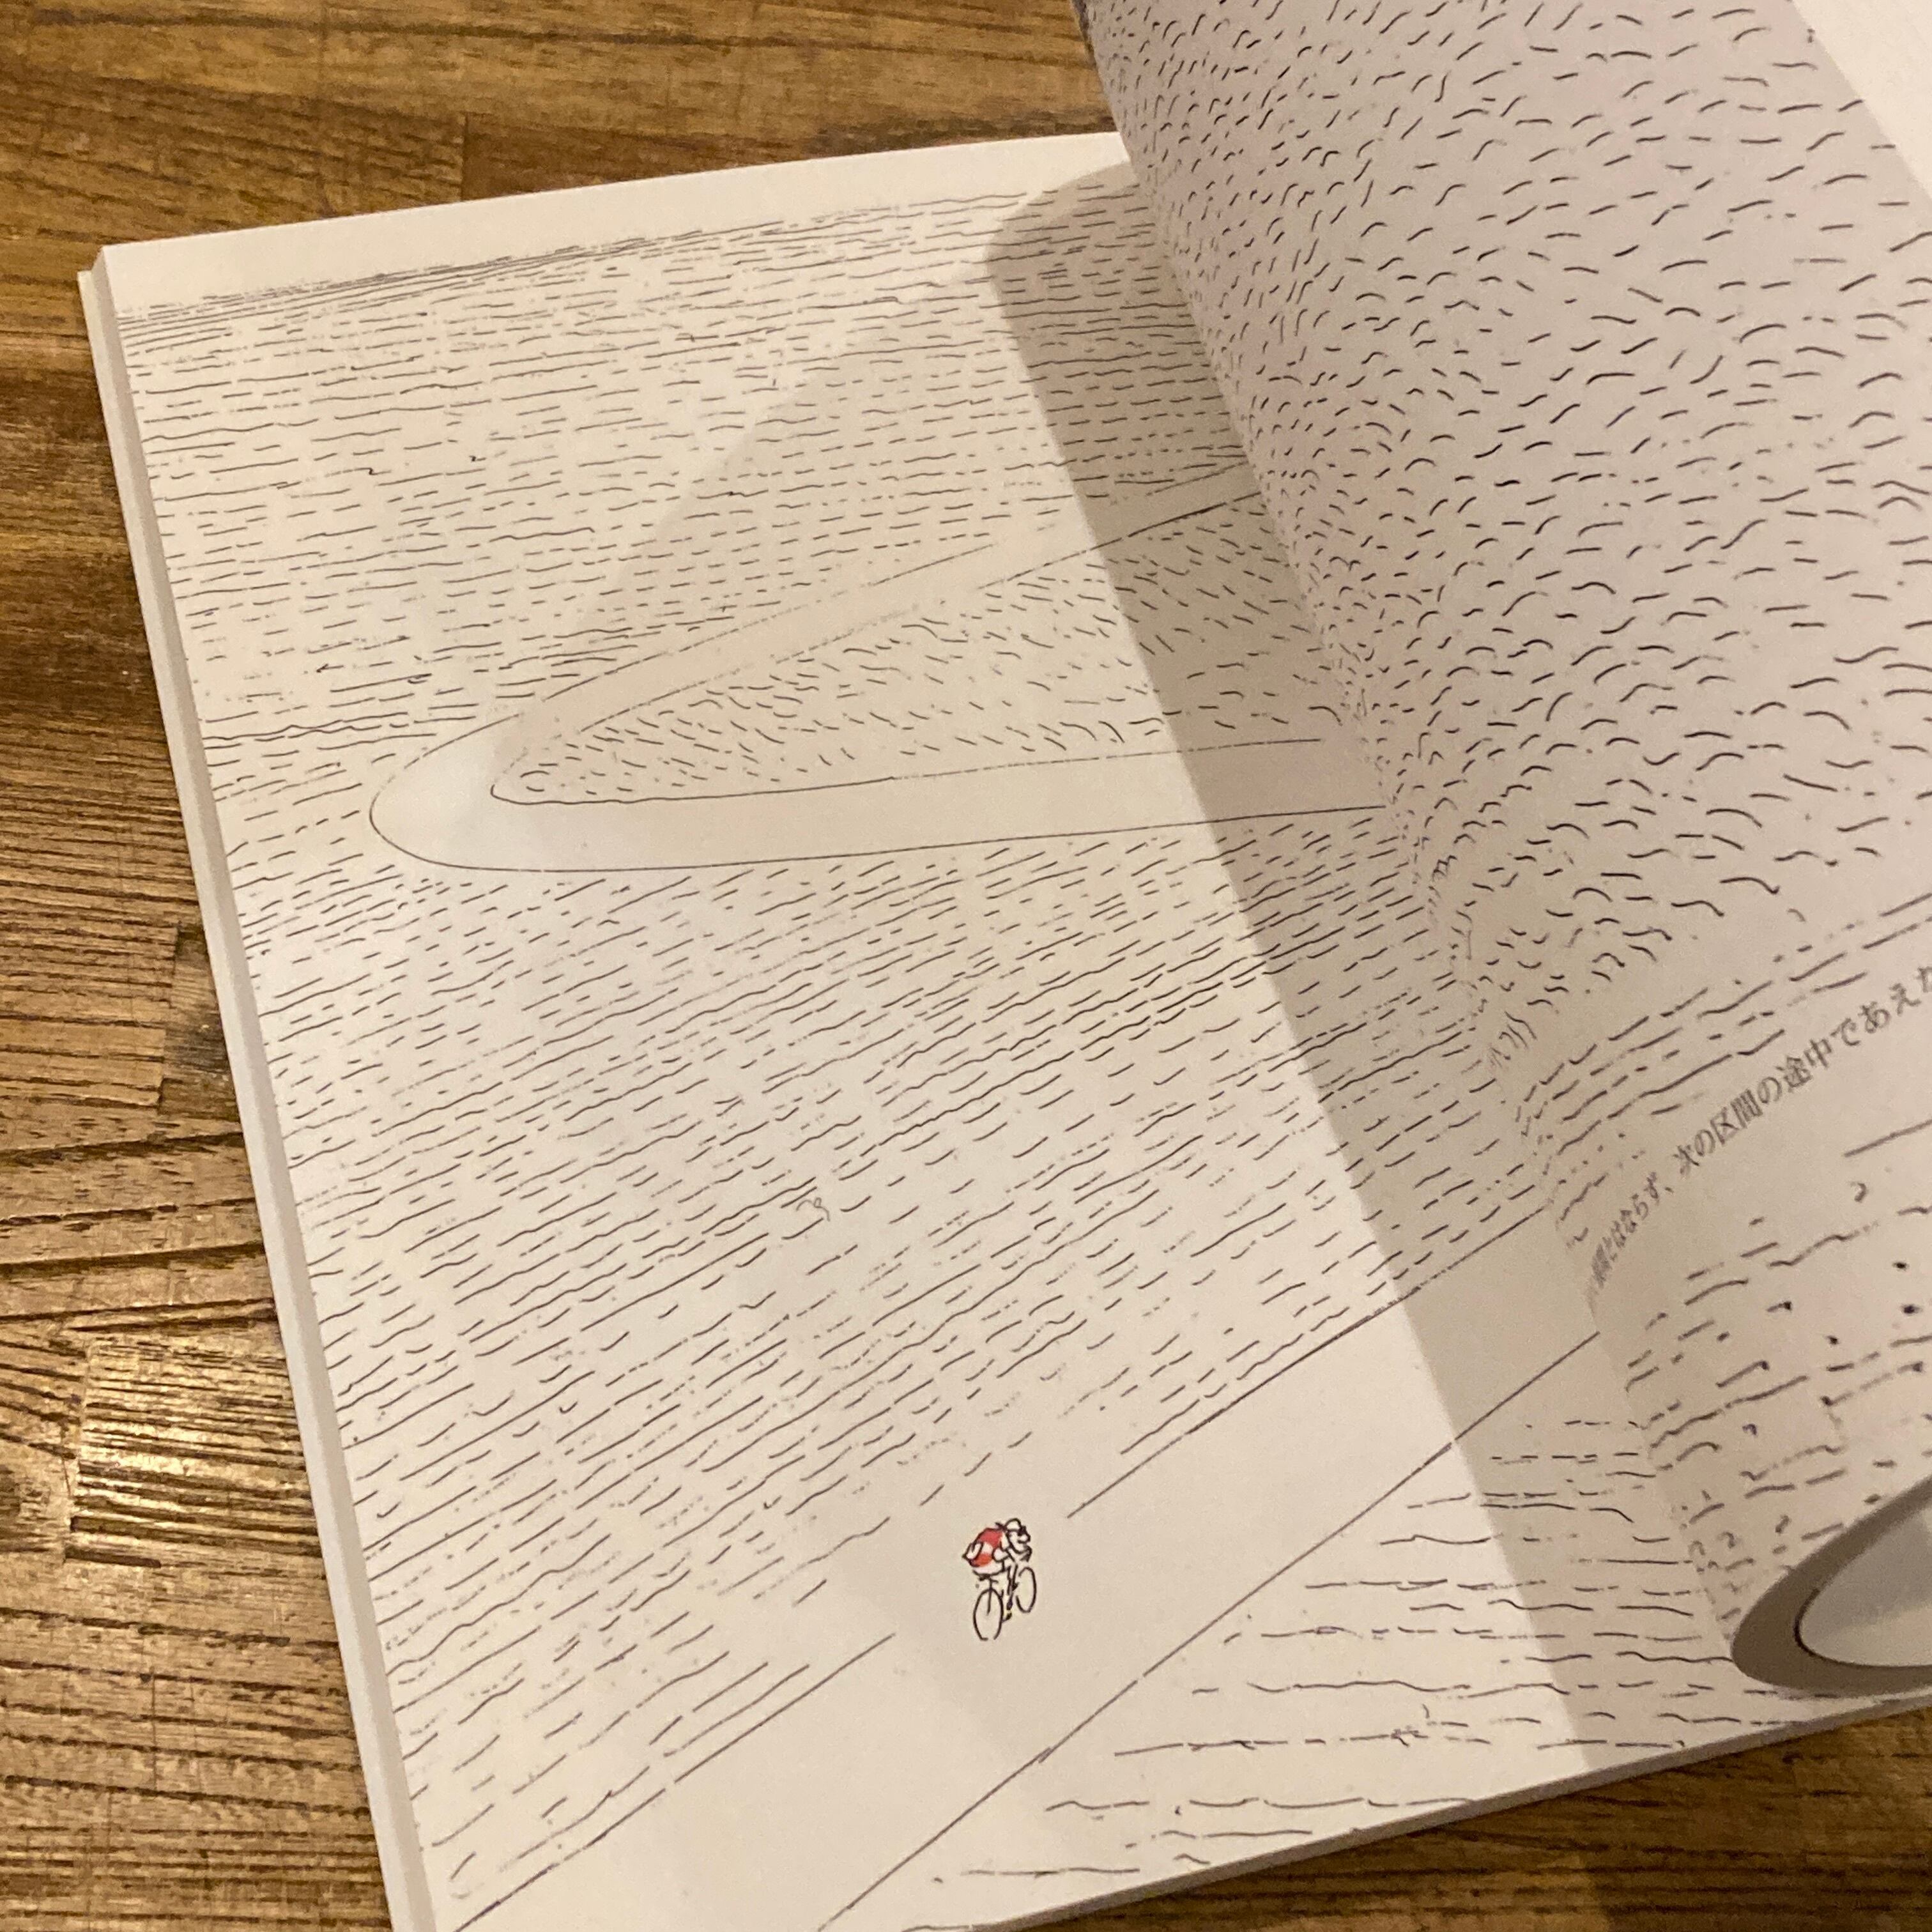 とはならず、次の区間の途中であえな